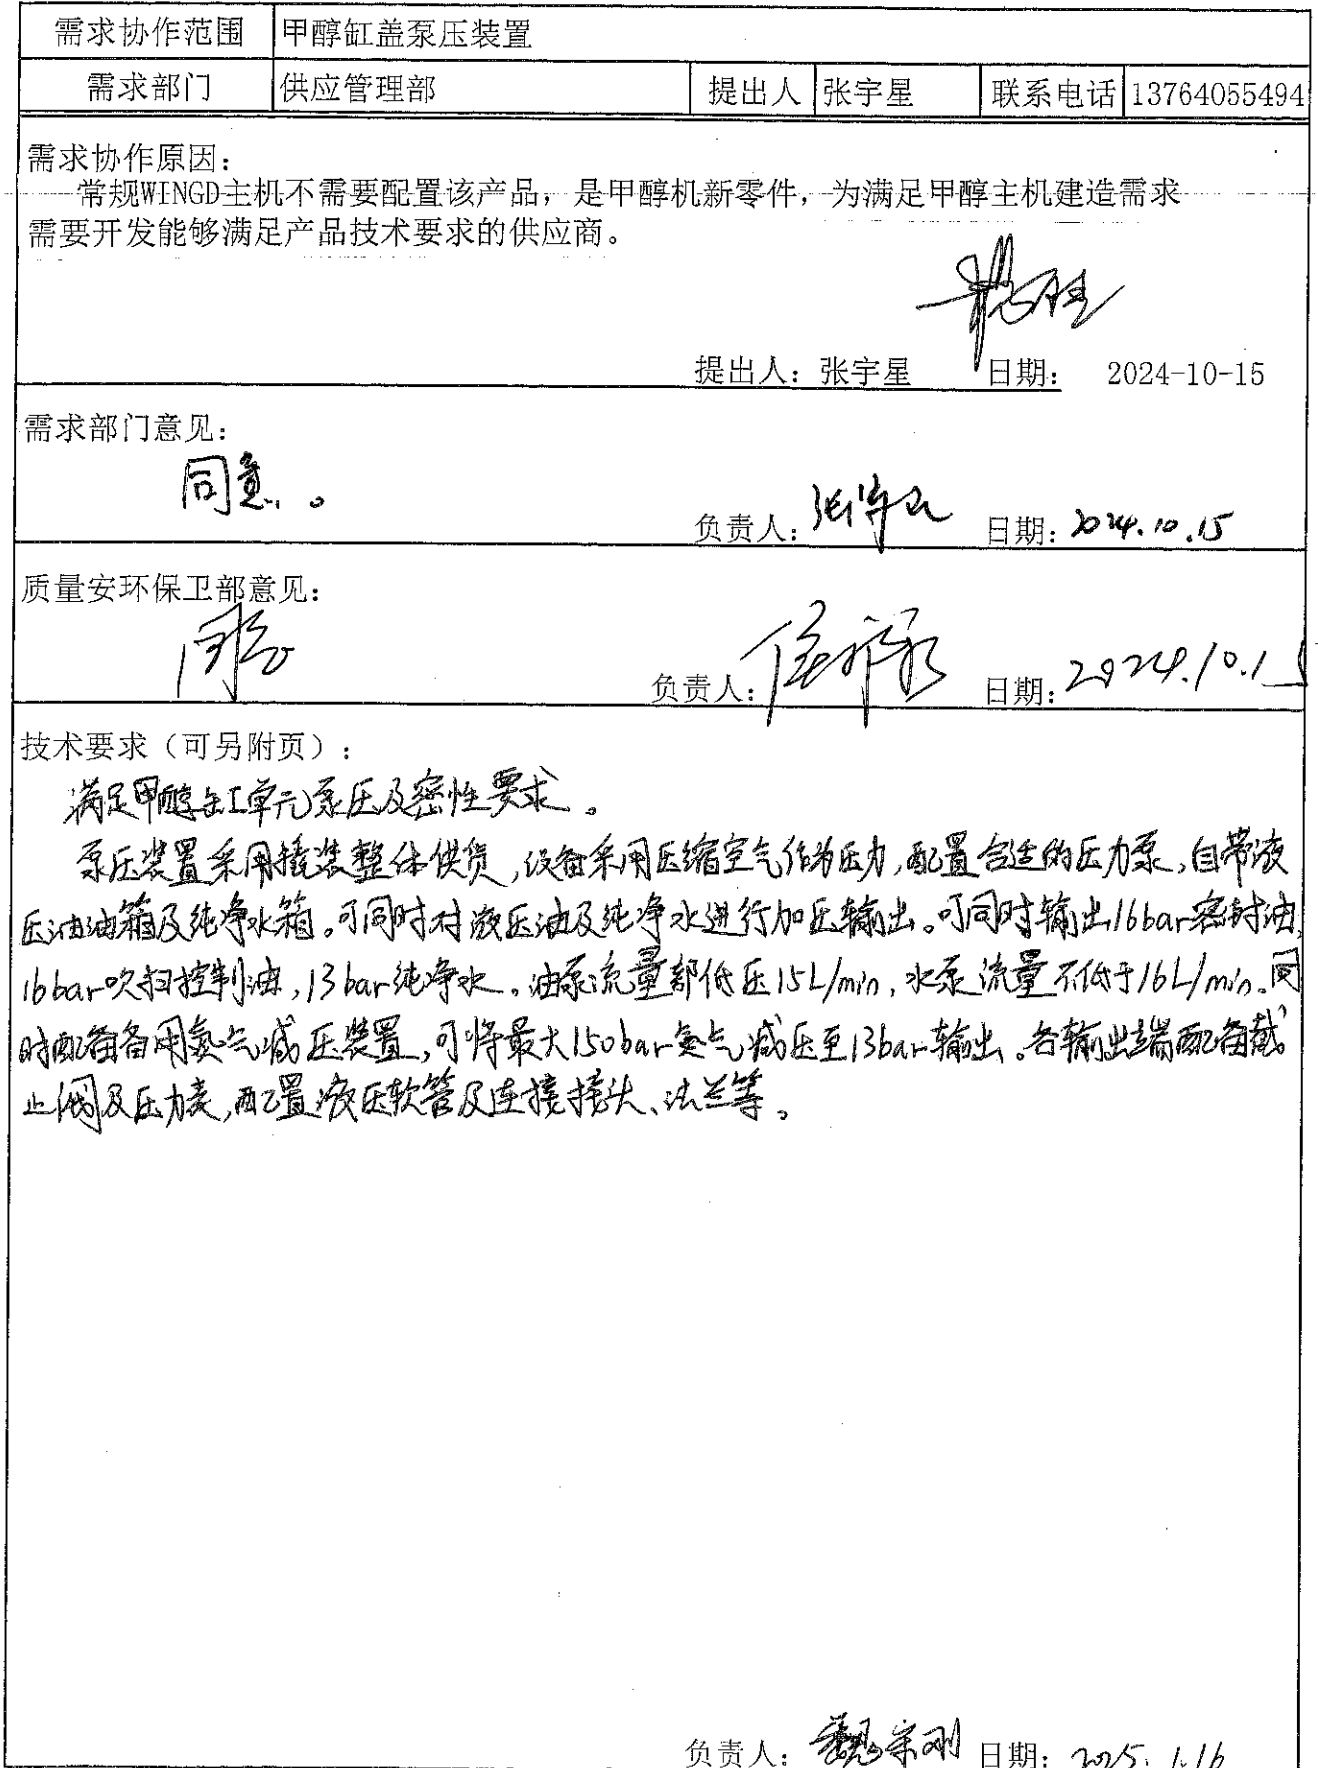 需求协作范围 甲醇缸盖泵压装置
需求部门 供应管理部 提出人 张宇星 联系电话 13764055494
需求协作原因：
常规WINGD主机不需要配置该产品，是甲醇机新零件，为满足甲醇主机建造需求
需要开发能够满足产品技术要求的供应商。
提出人：张宇星 日期： 2024-10-15
需求部门意见：
同意。
负责人： 日期：2024.10.15
质量安环保卫部意见：
同意
负责人： 日期：2024.10.15
技术要求（可另附页）：
满足甲醇缸单元泵压及密性要求。
泵压装置采用撬装整体供货，设备采用压缩空气作为压力，配置合适的压力泵，自带液
压油油箱及纯净水箱。可同时对液压油及纯净水进行加压输出。可同时输出16bar密封油，
16bar吹扫控制油，13bar纯净水。油泵流量部低压15L/min，水泵流量不低于16L/min。同
时配备备用氮气减压装置，可将最大150bar氮气减压至13bar输出。各输出端配备截
止阀及压力表，配置液压软管及连接接头、法兰等。
负责人： 日期：2025.1.16